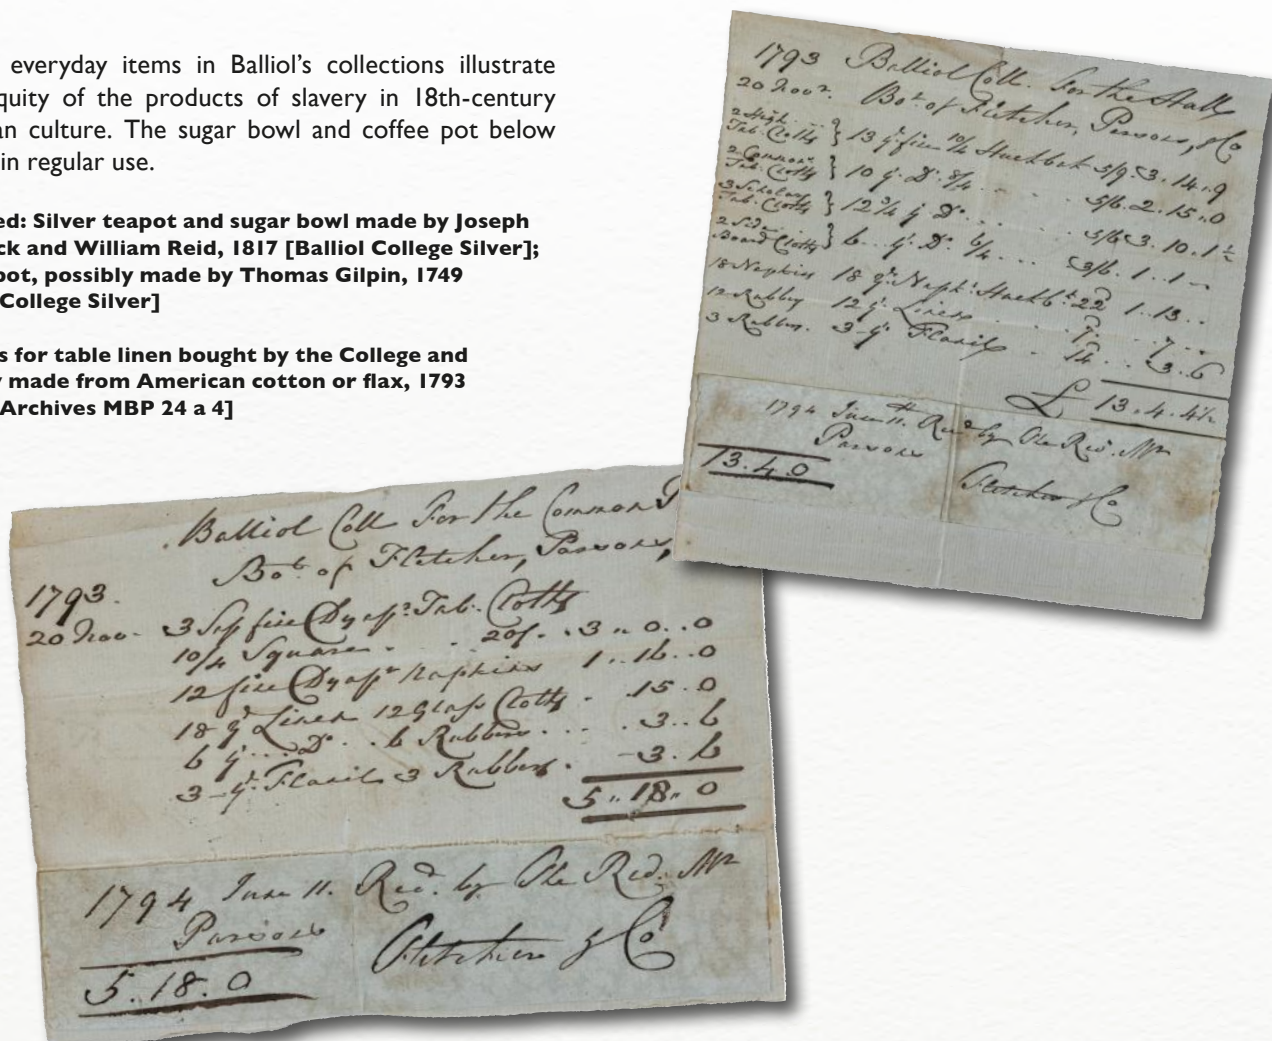 everyday items in Balliol's collections illustrate
quity of the products of slavery in 18th-century
an culture. The sugar bowl and coffee pot below
in regular use.
ed: Silver teapot and sugar bowl made by Joseph
ck and William Reid, 1817 [Balliol College Silver];
pot, possibly made by Thomas Gilpin, 1749
College Silver]
s for table linen bought by the College and
y made from American cotton or flax, 1793
Archives MBP 24 a 4]
1793 Balliol Coll. For the Hall
20 Novr. Bot. of Fletcher, Parsons, & Co
2 High
Tab. Cloths } 13 yd fine 10/4 Huckbak 5/9. 3. 14. 9
2 Common
Tab. Cloths } 10 yd. Do. 8/4 5/6. 2. 15. 0
3 Scholars
Tab. Cloths } 12 3/4 yd Do. 5/6 3. 10. 1 1/2
2 Side
Board Cloths } 6 yd. Do. 6/4 3/6. 1. 1
18 Napkins 18 yd. Napk. Huckbk 22d 1. 13
12 Rubbers 12 yd. Linen 7d. 7
3 Rubbers. 3 yd. 14d 3. 6
£ 13. 4. 4 1/2
1794 June 11. Recd by the Revd. Mr
Parsons
13. 4. 0
Fletcher & Co
Balliol Coll For the Common
Bot. of Fletcher, Parsons,
1793.
20 Nov. 3 Sup fine Dyapr. Tab. Cloths
10/4 Square. 20/. 3 " 0. 0
12 fine Dyapr Napkins 1. 16. 0
18 yd Linen 12 Glass Cloths. 15. 0
6 yd. Do. 6 Rubbers 3. 6
3 yd. 3 Rubbers. 3. 6
5 " 18 " 0
1794 June 11. Recd. by the Revd. Mr
Parsons
5. 18. 0
Fletcher & Co